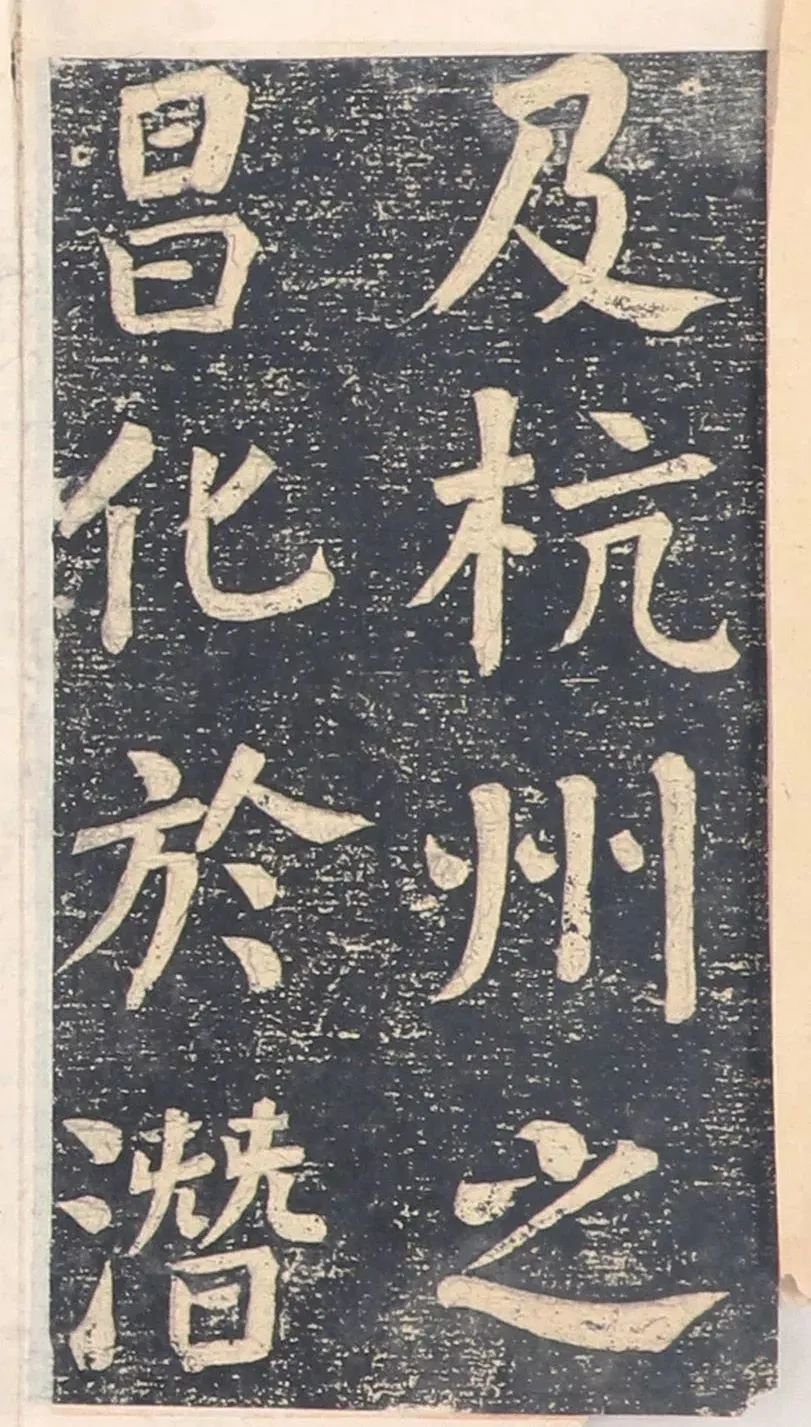 及杭州之
昌化於潛